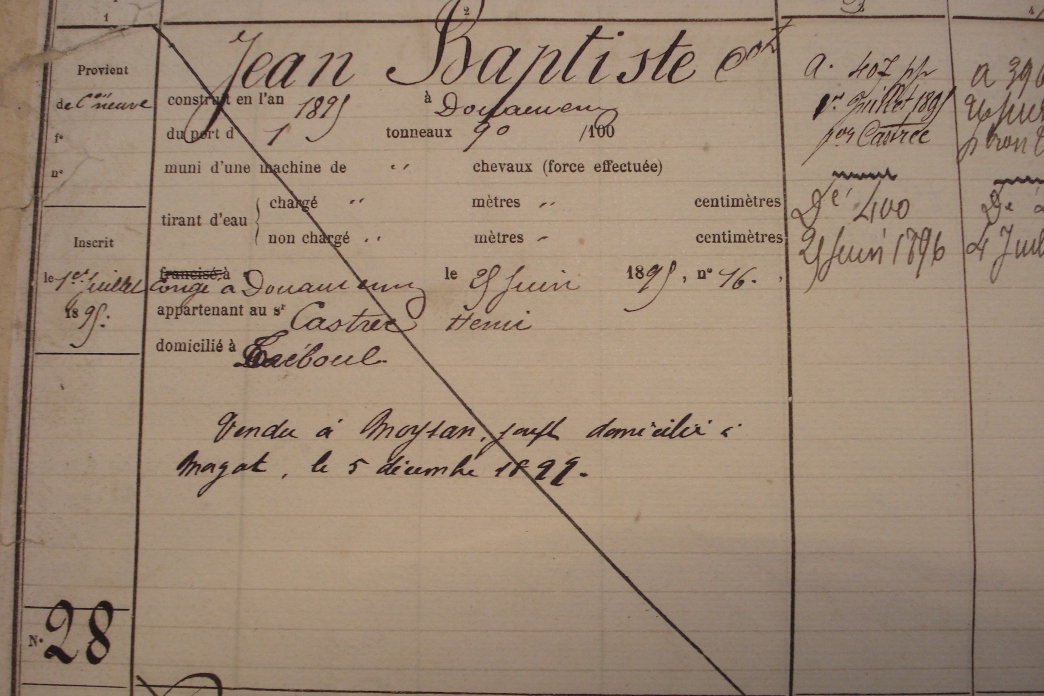 1
2
3
Provient
de Con neuve
f°
n°
Inscrit
le 1er Juillet
1895.
N° 28
Jean Baptiste
construit en l'an 1895 à Douarnenez
du port d 1 tonneaux 90 /100
muni d'une machine de " chevaux (force effectuée)
tirant d'eau
chargé " mètres " centimètres
non chargé " mètres " centimètres
francisé à
Congé a Douarnenez le 25 Juin 1895, n° 76.
appartenant au sr Castrec Henri
domicilié à Tréboul
Vendu à Moysan, joseph domicilié à
Mogat, le 5 décembre 1899.
a. 407 pp
1er Juillet 1895
par Castrec
Dé 400
25 Juin 1896
a 396
Dé
4 Juil